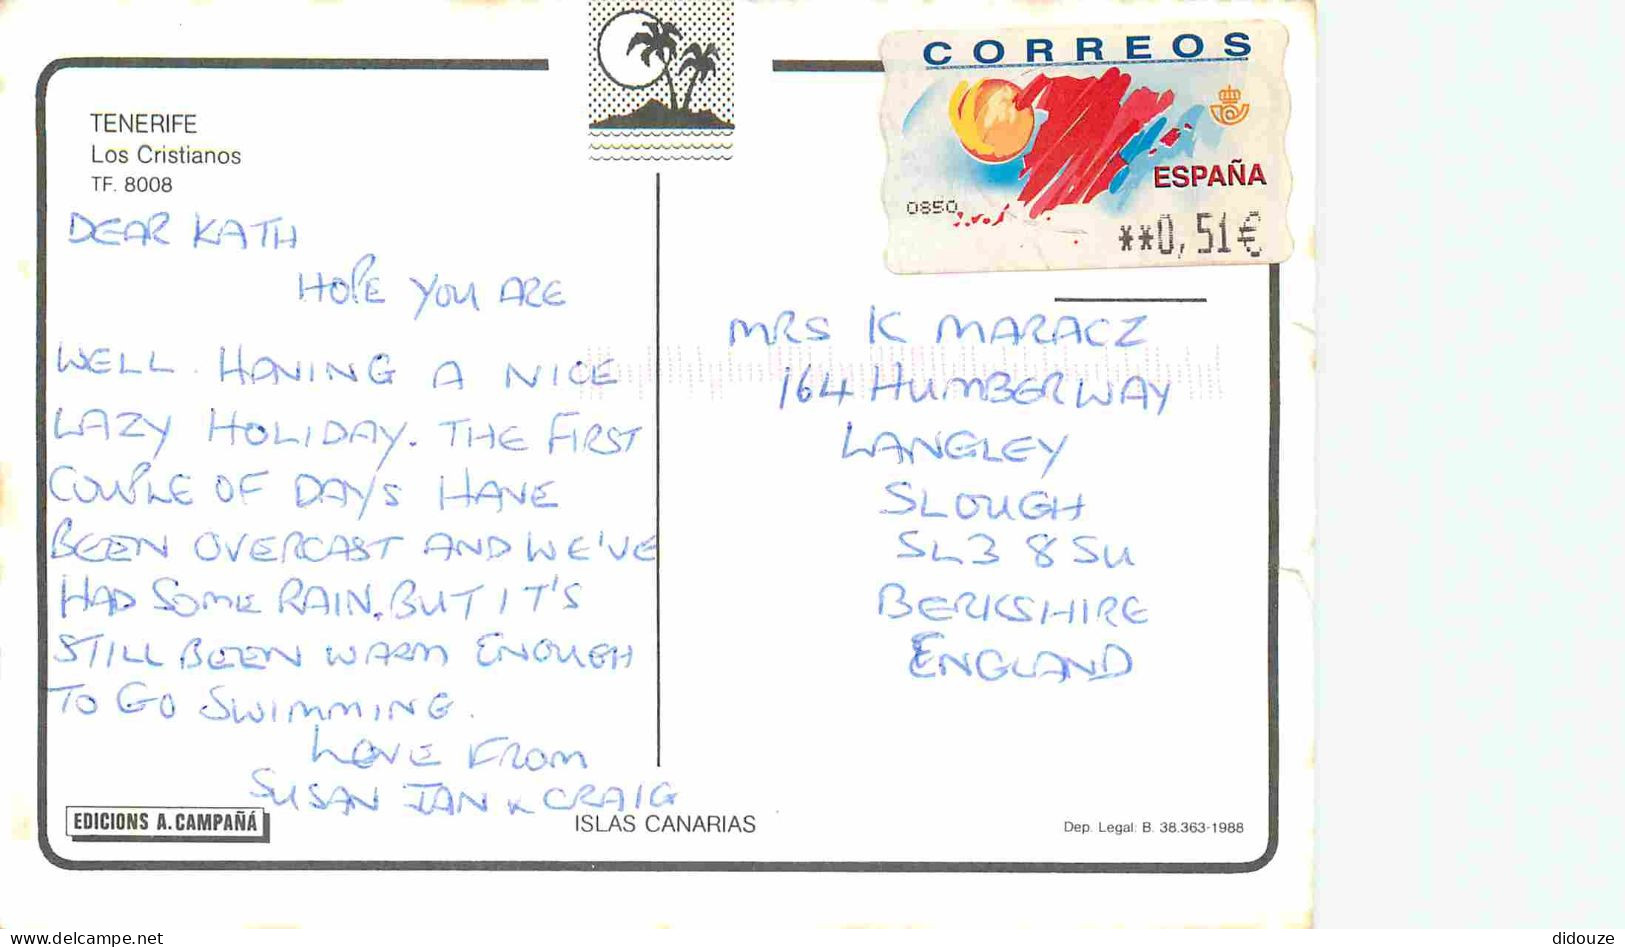 CORREOS
ESPAÑA
0850
**0,51€
TENERIFE
Los Cristianos
TF. 8008
DEAR KATH
HOPE YOU ARE
WELL. HAVING A NICE
LAZY HOLIDAY. THE FIRST
COUPLE OF DAYS HAVE
BEEN OVERCAST AND WE'VE
HAD SOME RAIN. BUT IT'S
STILL BEEN WARM ENOUGH
TO GO SWIMMING.
LOVE FROM
SUSAN IAN & CRAIG
MRS K MARACZ
164 HUMBER WAY
LANGLEY
SLOUGH
SL3 8SU
BERKSHIRE
ENGLAND
EDICIONS A. CAMPAÑÁ
ISLAS CANARIAS
Dep. Legal: B. 38.363-1988
delcampe.net
didouze